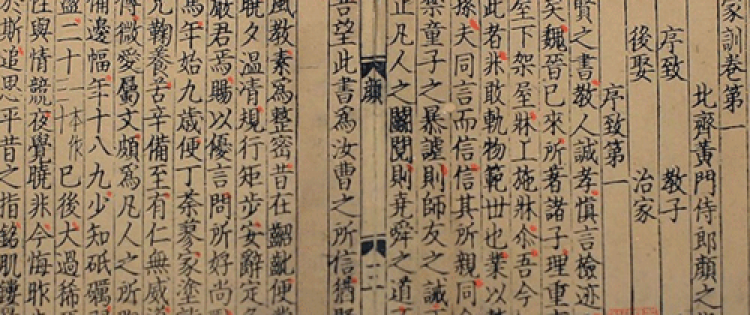 家訓卷第一
北齊黃門侍郎顏之
序致 教子
後娶 治家
序致第一
賢之書教人誠孝慎言檢迹
矣魏晉已來所著諸子理重
室下架屋牀上施牀尒吾今
此者非敢軌物範世也業以
孫夫同言而信信其所親同
禁童子之暴謔則師友之誡
止凡人之鬬鬩則堯舜之道
顏
吾望此書爲汝曹之所信猶
風教素爲整密昔在齠齔便
曉夕温凊規行矩步安辭定
嚴君焉賜以優言問所好尚
焉年始九歲便丁荼蓼家塗
兄鞠養苦辛備至有仁無威
傳微愛屬文頗爲凡人之所
備邊幅年十八九少知砥礪
二十 本作 已後大過稀
性與情競夜覺曉非今悔昨
於斯追思平昔之指銘肌鏤